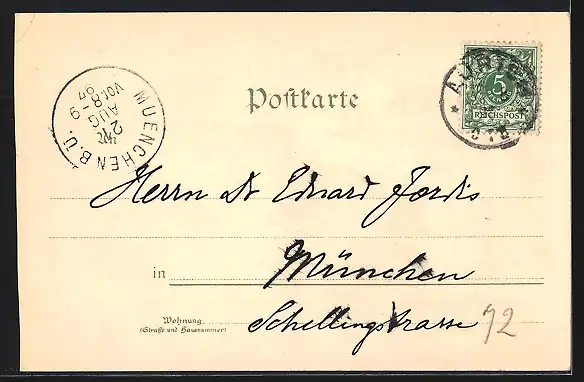 MUENCHEN B.U.
24
AUG
VOR. 8-9
97
Postkarte
5
REICHSPOST
Herrn Dr Eduard Jordis
in München
Wohnung
(Straße und Hausnummer)
Schellingstrasse 72